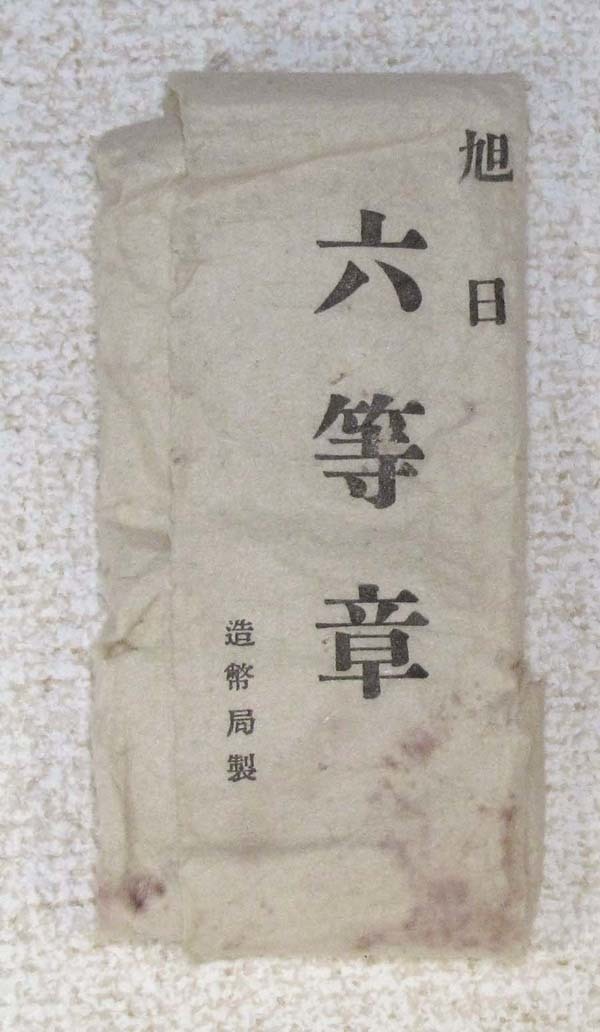 旭日
六等章
造幣局製